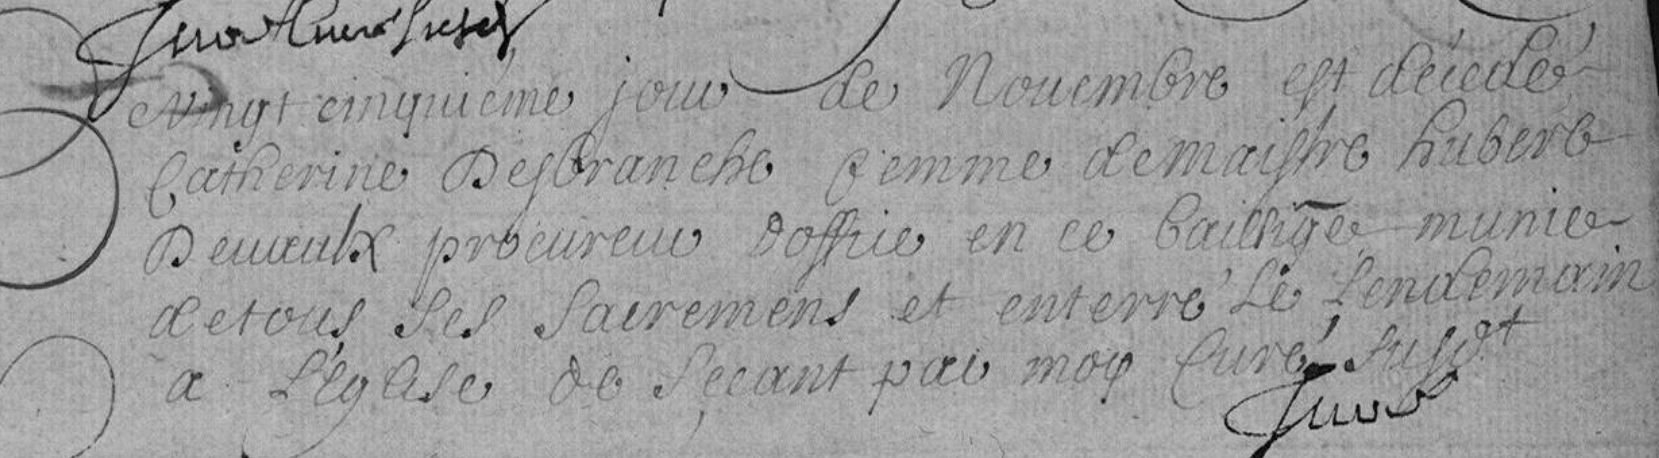 Curé susd
Vingt cinquiéme jour de Nouembre est décedé
Catherine Desbranche femme demaistre hubert
Deuaulx procureur doffice en ce bailliage munie
detous ses sacremens et enterré Le Lendemain
a L'église de Secant par moy Curé susdt